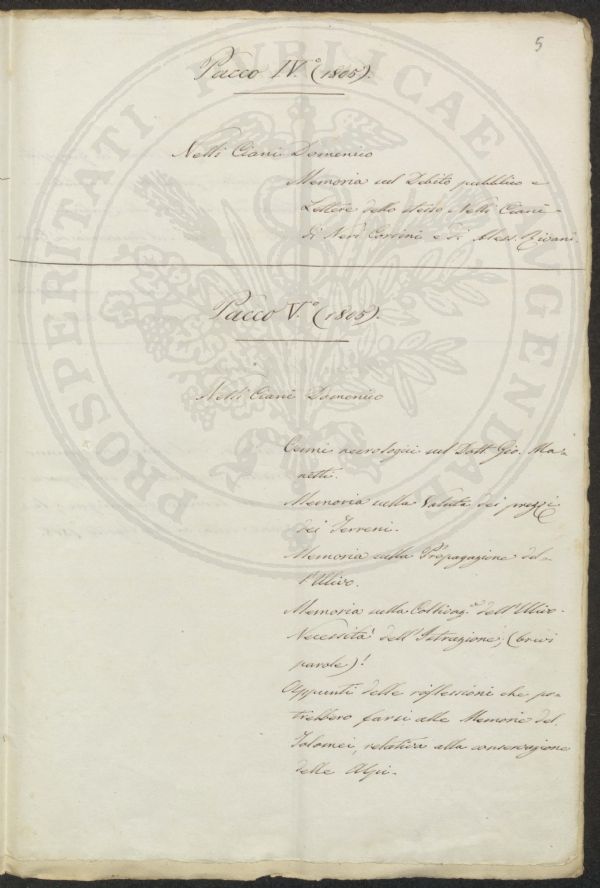 5
Pacco IV.º (1805).
Nelli Ciani Domenico
Memoria sul Debito pubblico e
Lettere dello stesso Nelli Ciani
di Neri Corsini e di Aless.
Pacco V.º (1805).
Nelli Ciani Domenico
Cenni necrologici sul Dott. Gio. Ma-
netti.
Memoria sulla Valuta dei prezzi
dei Terreni.
Memoria sulla Propagazione del-
l'Ulivo.
Memoria sulla Coltivaz.e dell'Ulivo.
Necessità dell'Istruzione, (brevi
parole)!
Appunti delle riflessioni che po-
trebbero farsi alle Memorie del
Tolomei, relativa alla conservazione
delle Alpi.
PROSPERITATI PUBLICAE AUGENDAE